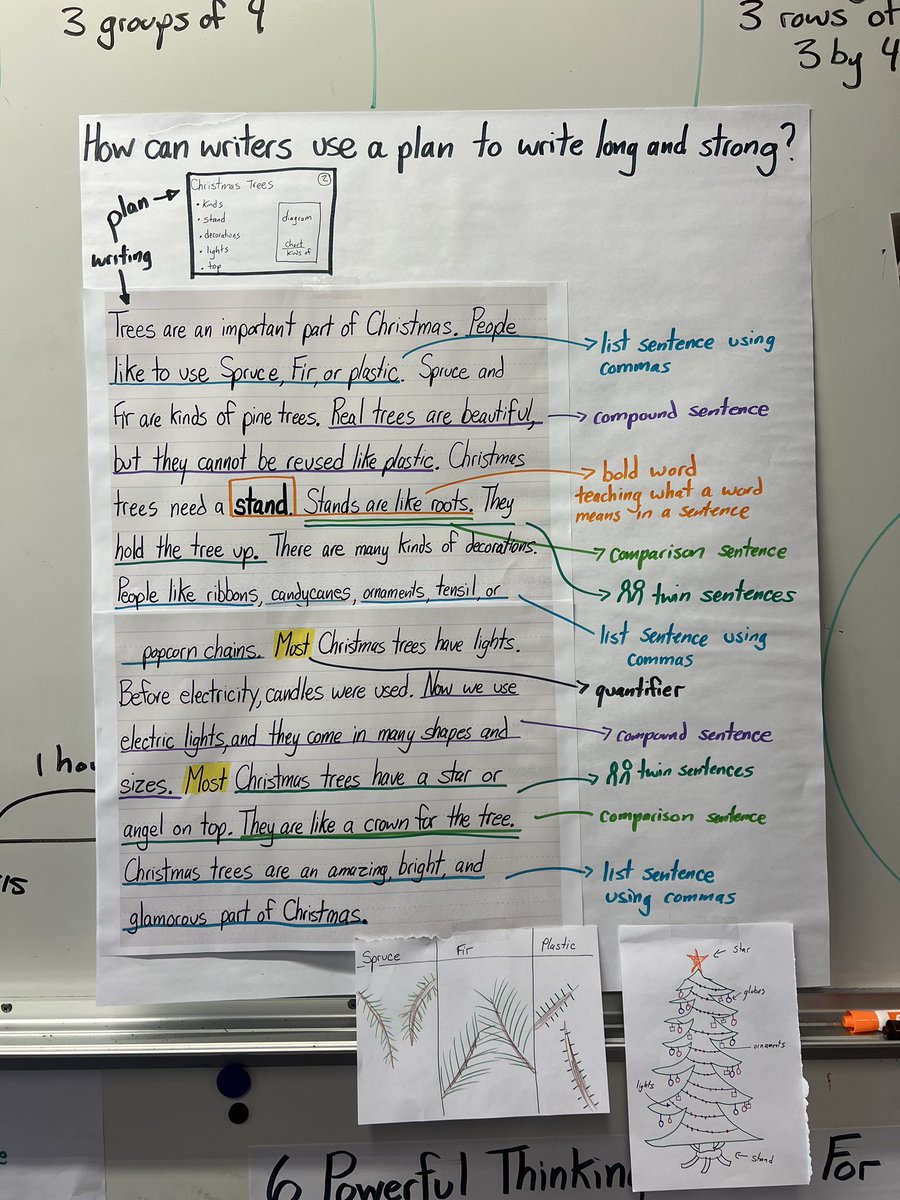 3 groups of 4
3 rows of
3 by 4
How can writers use a plan to write long and strong?
plan
writing
Christmas Trees
2
• kinds
• stand
• decorations
• lights
• top
diagram
chart
kinds of
Trees are an important part of Christmas. People
like to use Spruce, Fir, or plastic. Spruce and
Fir are kinds of pine trees. Real trees are beautiful,
but they cannot be reused like plastic. Christmas
trees need a stand. Stands are like roots. They
hold the tree up. There are many kinds of decorations.
People like ribbons, candycanes, ornaments, tensil, or
popcorn chains. Most Christmas trees have lights.
Before electricity, candles were used. Now we use
electric lights, and they come in many shapes and
sizes. Most Christmas trees have a star or
angel on top. They are like a crown for the tree.
Christmas trees are an amazing, bright, and
glamorous part of Christmas.
list sentence using
commas
compound sentence
bold word
teaching what a word
means in a sentence
comparison sentence
twin sentences
list sentence using
commas
quantifier
compound sentence
twin sentences
comparison sentence
list sentence
using commas
1 hou
15
Spruce
Fir
Plastic
star
globes
ornaments
lights
stand
6 Powerful Thinking
For